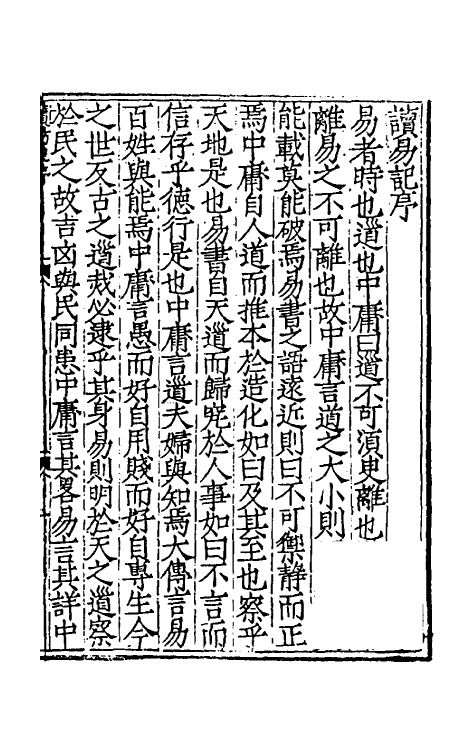 讀易記序
易者時也道也中庸曰道不可須臾離也
離易之不可離也故中庸言道之大小則
能載莫能破焉易書之語遠近則曰不可禦靜而正
焉中庸自人道而推本於造化如曰及其至也察乎
天地是也易書自天道而歸宿於人事如曰不言而
信存乎德行是也中庸言道夫婦與知焉大傳言易
百姓與能焉中庸言愚而好自用賤而好自專生今
之世反古之道烖必逮乎其身易則明於天之道察
於民之故吉凶與民同患中庸言其畧易言其詳中